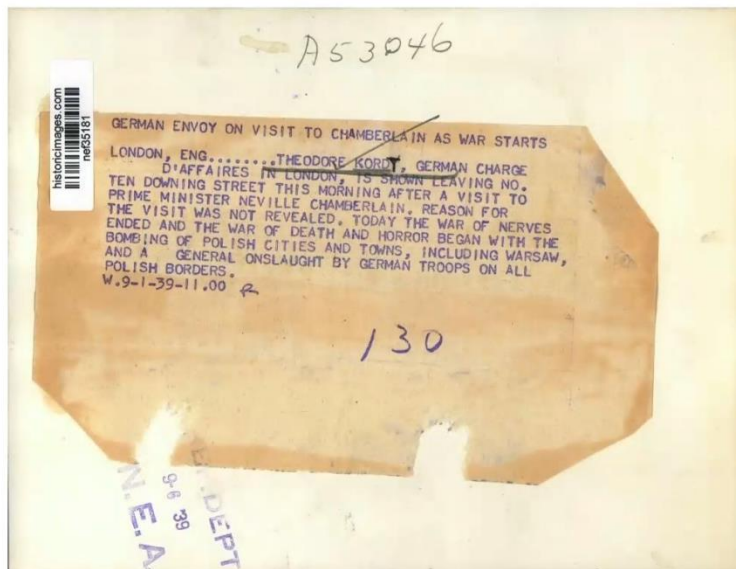 A53046
historicimages.com
nef35181
GERMAN ENVOY ON VISIT TO CHAMBERLAIN AS WAR STARTS
LONDON, ENG........THEODORE KORDT, GERMAN CHARGE
D'AFFAIRES IN LONDON, IS SHOWN LEAVING NO.
TEN DOWNING STREET THIS MORNING AFTER A VISIT TO
PRIME MINISTER NEVILLE CHAMBERLAIN. REASON FOR
THE VISIT WAS NOT REVEALED. TODAY THE WAR OF NERVES
ENDED AND THE WAR OF DEATH AND HORROR BEGAN WITH THE
BOMBING OF POLISH CITIES AND TOWNS, INCLUDING WARSAW,
AND A GENERAL ONSLAUGHT BY GERMAN TROOPS ON ALL
POLISH BORDERS.
W.9-1-39-11.00 R
130
DEPT
9-6 39
N.E.A.